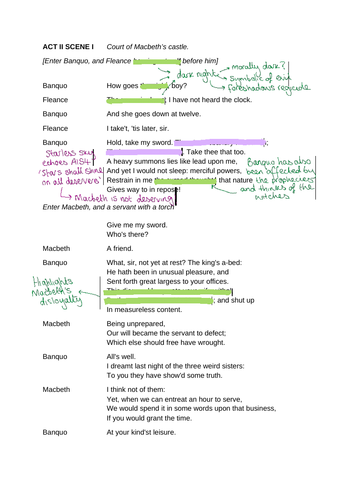 ACT II SCENE I Court of Macbeth's castle.
[Enter Banquo, and Fleance before him]
morally dark?
dark night
Symbolic of evil
foreshadows regicide
Banquo How goes boy?
Fleance I have not heard the clock.
Banquo And she goes down at twelve.
Fleance I take't, 'tis later, sir.
Banquo Hold, take my sword.
Take thee that too.
A heavy summons lies like lead upon me,
And yet I would not sleep: merciful powers,
Restrain in me that nature
Gives way to in repose!
Starless sky
echoes A1S4
'Stars shall shine
on all deservers'
Macbeth is not deserving
Banquo has also
been affected by
the prophecies
and thinks of the
witches
Enter Macbeth, and a servant with a torch
Give me my sword.
Who's there?
Macbeth A friend.
Banquo What, sir, not yet at rest? The king's a-bed:
He hath been in unusual pleasure, and
Sent forth great largess to your offices.
; and shut up
In measureless content.
Highlights
Macbeth's
disloyalty
Macbeth Being unprepared,
Our will became the servant to defect;
Which else should free have wrought.
Banquo All's well.
I dreamt last night of the three weird sisters:
To you they have show'd some truth.
Macbeth I think not of them:
Yet, when we can entreat an hour to serve,
We would spend it in some words upon that business,
If you would grant the time.
Banquo At your kind'st leisure.